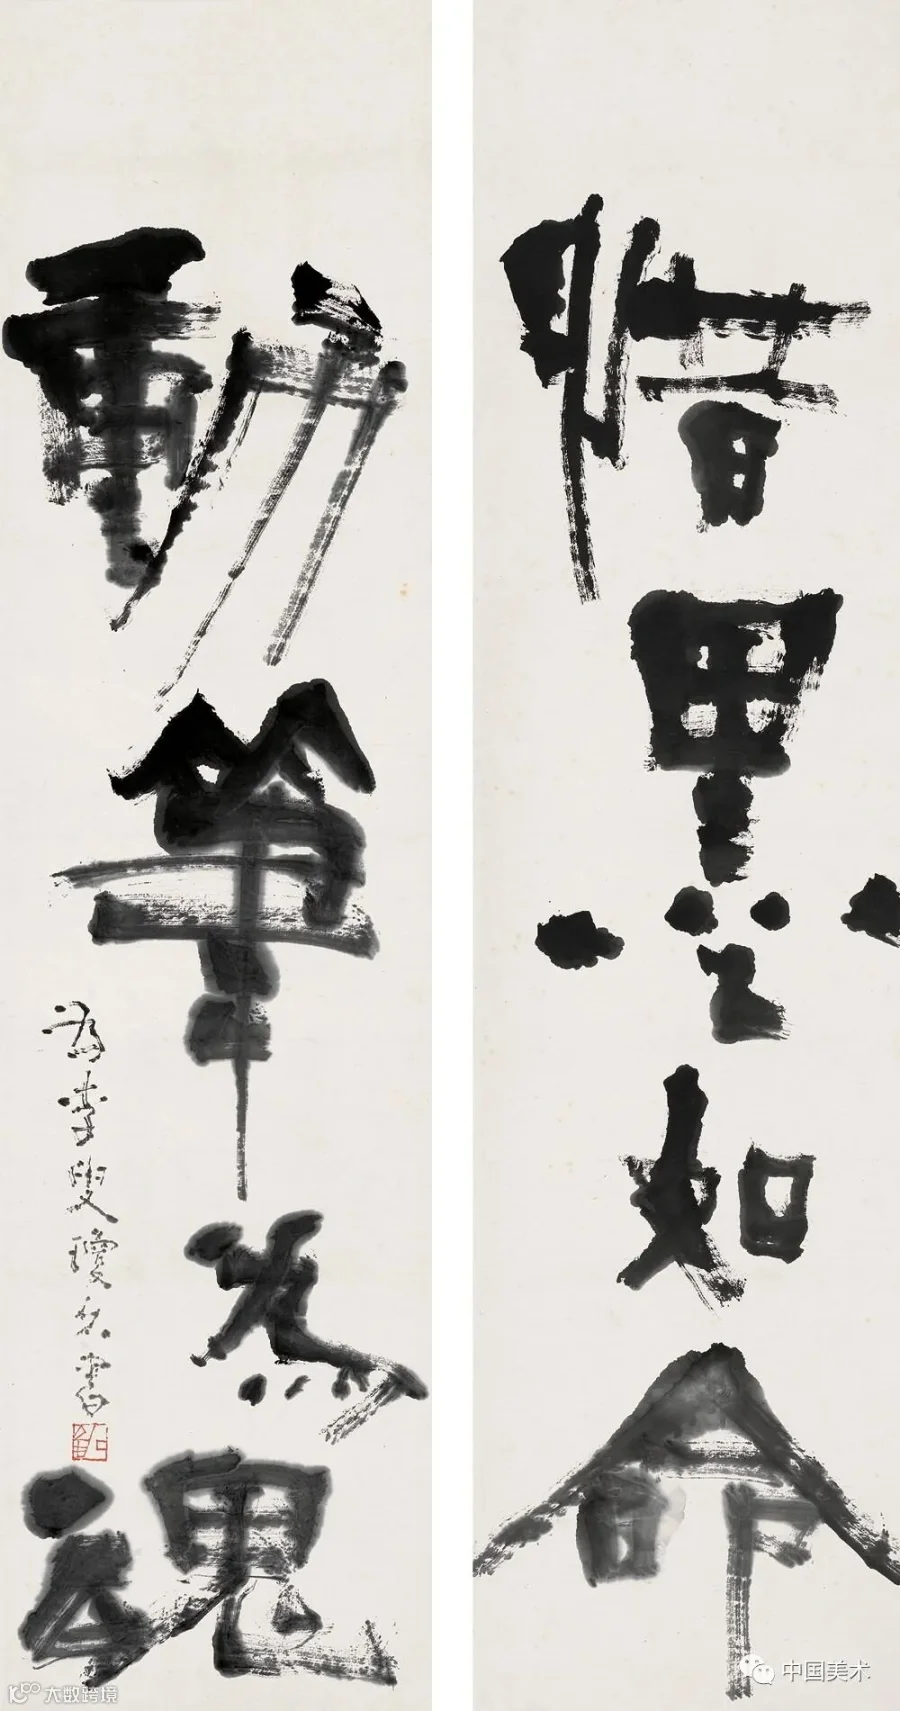 惜墨如命
動筆為魂
為李叟瓊久書
中国美术
大数跨境